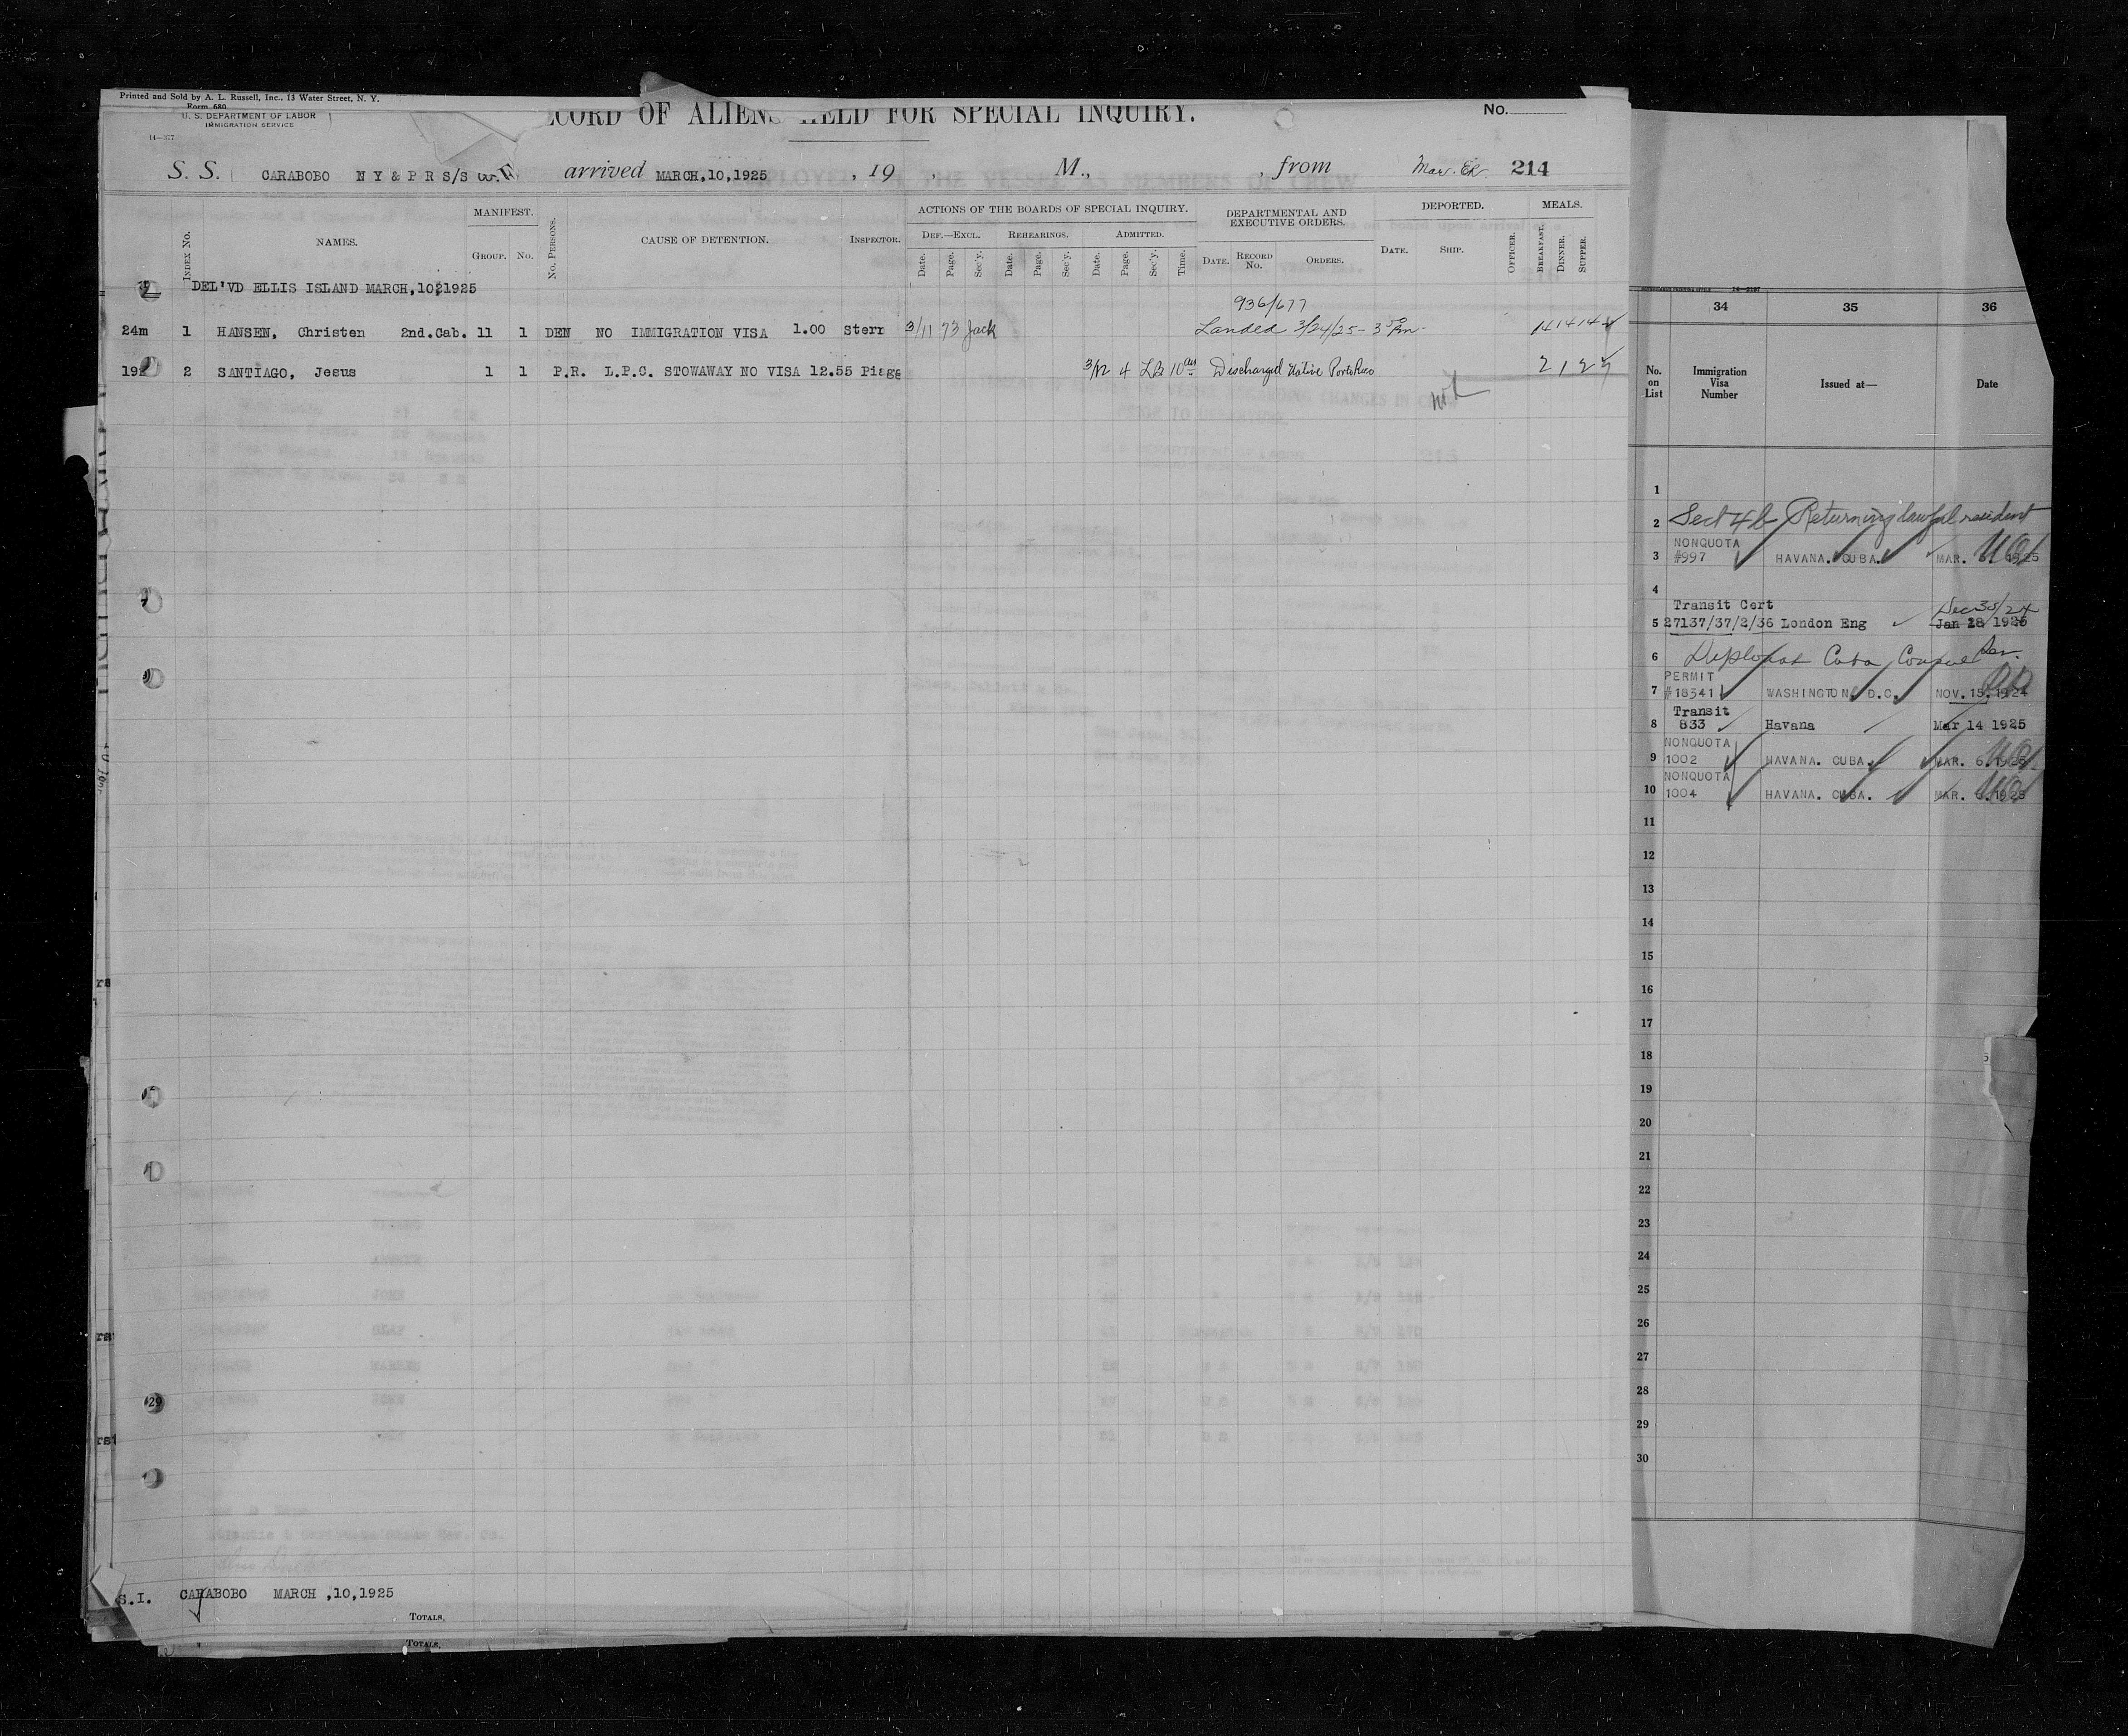 Printed and Sold by A. L. Russell, Inc., 13 Water Street, N. Y.
Form 680
U. S. DEPARTMENT OF LABOR
IMMIGRATION SERVICE
14—377
RECORD OF ALIENS HELD FOR SPECIAL INQUIRY.
No.
S. S. CARABOBO N Y & P R S/S arrived MARCH,10,1925 , 19 , M., , from 214
INDEX No. NAMES. MANIFEST. GROUP. No. No. PERSONS. CAUSE OF DETENTION. INSPECTOR.
ACTIONS OF THE BOARDS OF SPECIAL INQUIRY. DEPARTMENTAL AND EXECUTIVE ORDERS. DEPORTED. MEALS.
DEF.—EXCL. REHEARINGS. ADMITTED.
Date. Page. Sec'y. Date. Page. Sec'y. Date. Page. Sec'y. Time. DATE. RECORD No. ORDERS. DATE. SHIP. OFFICER. BREAKFAST. DINNER. SUPPER.
DEL'VD ELLIS ISLAND MARCH,10,1925
936/677
24m 1 HANSEN, Christen 2nd.Cab. 11 1 DEN NO IMMIGRATION VISA 1.00 Stern 3/11 73 Jack Landed 3/24/25 - 14 14 14
19 2 SANTIAGO, Jesus 1 1 P.R. L.P.C. STOWAWAY NO VISA 12.55 Piagg 3/12 4 LB 10 Discharged Native Porto Rico 2 1 2
S.I. CARABOBO MARCH ,10,1925
TOTALS,
TOTALS,
34 35 36
No. on List Immigration Visa Number Issued at— Date
1
2 Sect 4b Returning lawful resident
3 NONQUOTA #997 HAVANA. CUBA. MAR. 1925
4
5 Transit Cert 27137/37/2/36 London Eng Jan 28 1925 Dec 30/24
6 Diplomat Cuba Consul
7 PERMIT #18341 WASHINGTON D.C. NOV. 15.1924
8 Transit 833 Havana Mar 14 1925
9 NONQUOTA 1002 HAVANA. CUBA. MAR. 6.1925
10 NONQUOTA 1004 HAVANA. CUBA. MAR. 1925
11
12
13
14
15
16
17
18
19
20
21
22
23
24
25
26
27
28
29
30